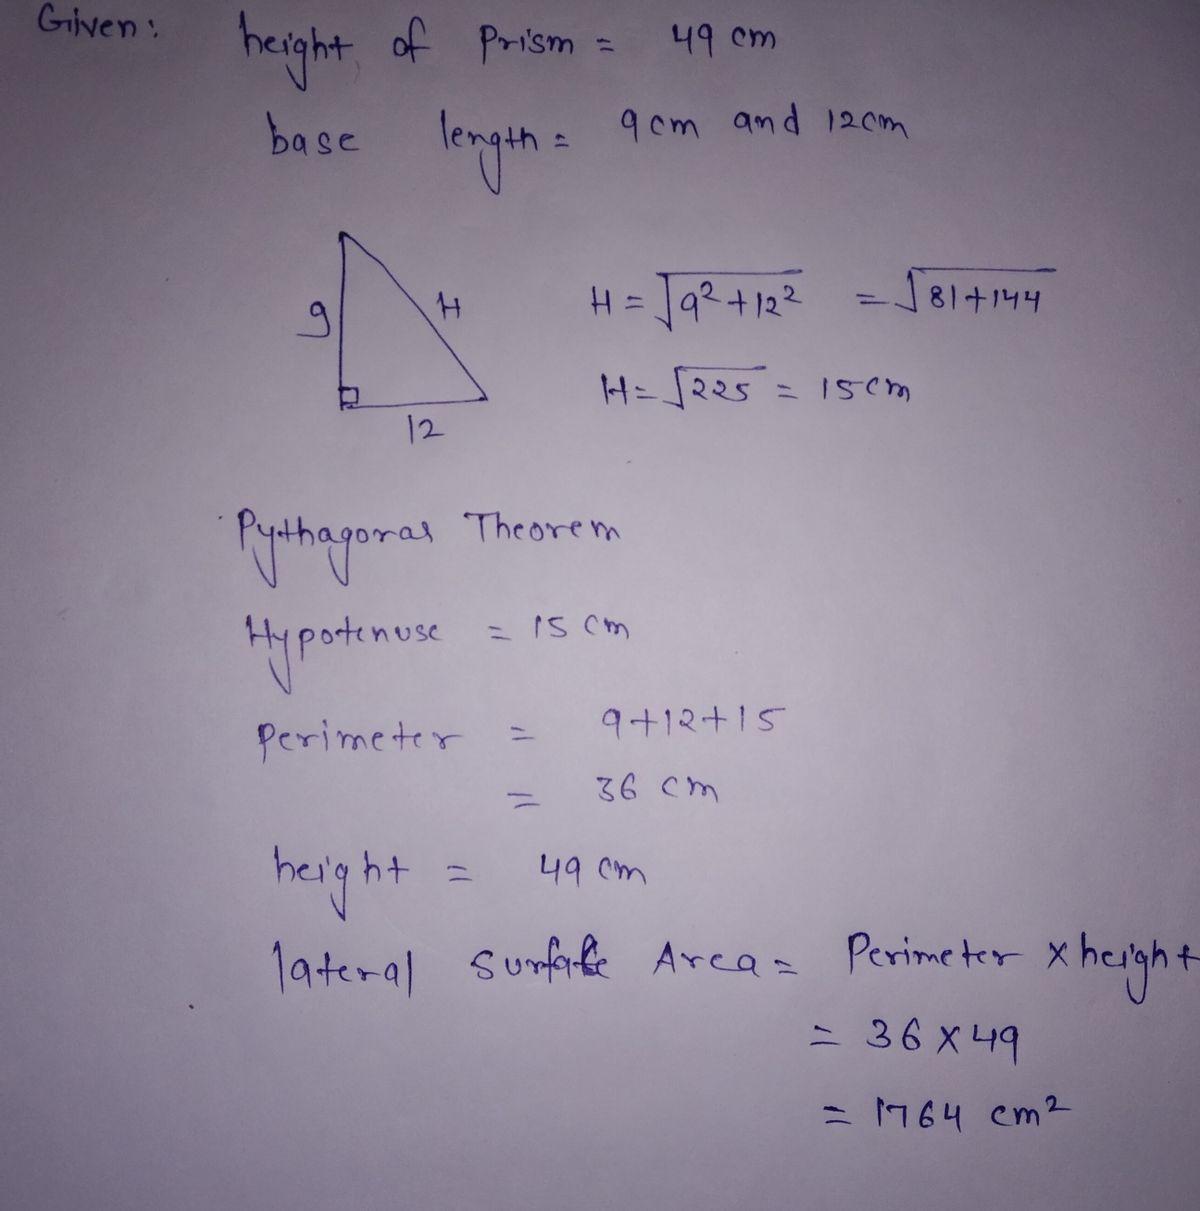 Given: height of Prism = 49 cm
base length = 9cm and 12cm
9 H
12
H = √9²+12² = √81+144
H = √225 = 15cm
Pythagoras Theorem
Hypotenuse = 15 cm
Perimeter = 9+12+15
= 36 cm
height = 49 cm
lateral Surface Area = Perimeter × height
= 36 × 49
= 1764 cm²